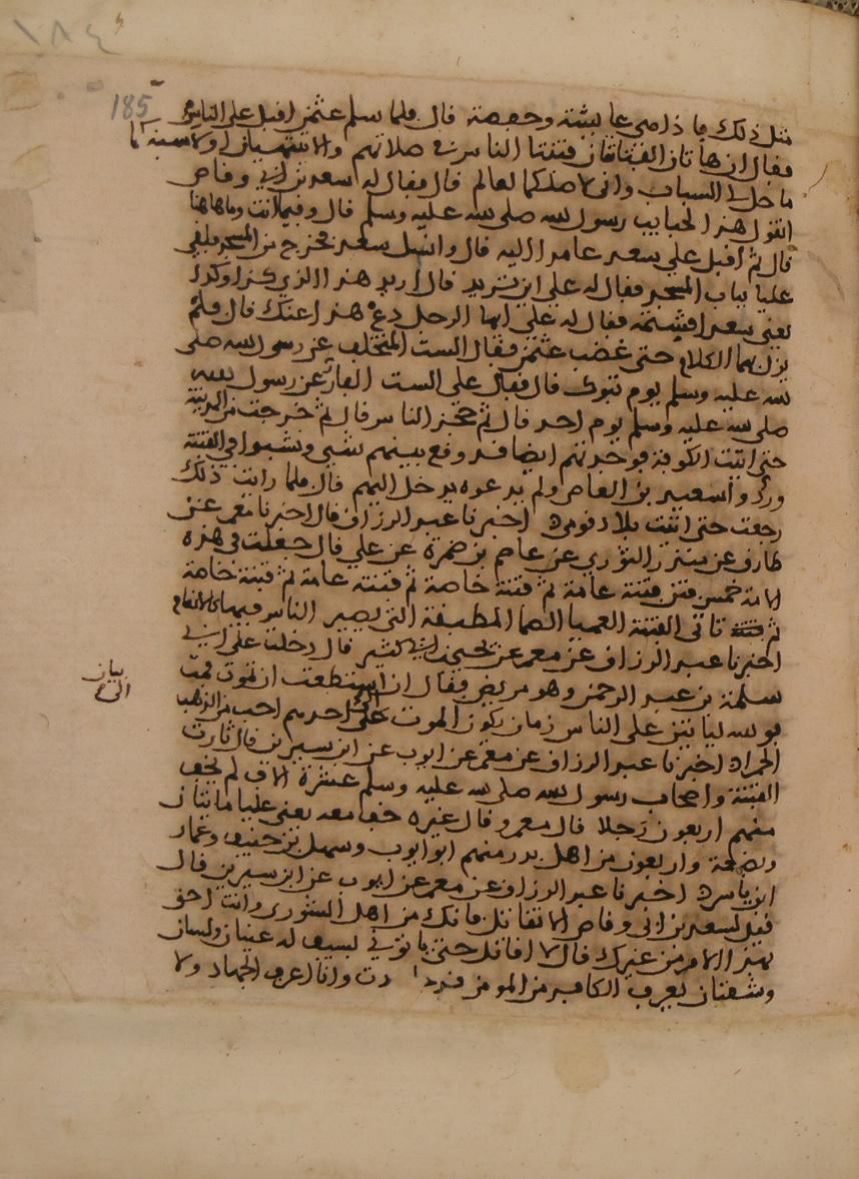 ١٨٤
185
مثل ذلك فاذا هي عايشة وحفصة قال فلما سلم عثمن اقبل على الناس
فقال ان هاتان الفتانتان فتنتا الناس في صلاتهم والا تنتهيان او لاسبنكما
ما حل لي السباب واني لاصلكما لعالم قال فقال له سعد بن ابي وقاص
اتقول هذا لحبايب رسول الله صلى الله عليه وسلم قال وفيما انت وما هاهنا
قال ثم اقبل على سعد عامدا اليه قال وانسل سعد فخرج من المسجد فلقي
عليا بباب المسجد فقال له علي اين تريد قال اريد هذا الذي كذا وكذا
يعني سعدا فشتمه فقال له علي ايها الرجل دع هذا عنك قال فلم
يزل بهما الكلام حتى غضب عثمن فقال الست المتخلف عن رسول الله صلى
الله عليه وسلم يوم تبوك قال فقال علي الست الفار عن رسول الله
صلى الله عليه وسلم يوم احد قال ثم حجز الناس قال ثم خرجت من المدينة
حتى اتيت الكوفة فوجدتهم ايضا قد وقع بينهم شي ونشبوا في الفتنة
وردوا سعيد بن العاص ولم يدعوه يدخل اليهم قال فلما رايت ذلك
رجعت حتى اتيت بلاد قومي اخبرنا عبد الرزاق قال اخبرنا معمر عن
طارق عن منذر الثوري عن عاصم بن ضمرة عن علي قال جعلت في هذه
الامة خمس فتن فتنة عامة ثم فتنة خاصة ثم فتنة عامة ثم فتنة خاصة
ثم تاتي الفتنة العميا الصما المطبقة التي يصير الناس فيها كالانعام
اخبرنا عبد الرزاق عن معمر عن يحيى بن ابي كثير قال دخلت على ابي
سلمة بن عبد الرحمن وهو مريض فقال ان استطعت ان تموت فمت
فوالله لياتين على الناس زمان يكون الموت الى احدهم احب من الذهب
الحمرا اخبرنا عبد الرزاق عن معمر عن ايوب عن ابن سيرين قال ثارت
الفتنة واصحاب رسول الله صلى الله عليه وسلم عشرة الاف لم يخف
منهم اربعون رجلا قال معمر وقال غيره خف معه يعني عليا مايتان
وبضعة واربعون من اهل بدر منهم ابو ايوب وسهل بن حنيف وعمار
ابن ياسر اخبرنا عبد الرزاق عن معمر عن ايوب عن ابن سيرين قال
قيل لسعد بن ابي وقاص الا تقاتل فانك من اهل الشورى وانت احق
بهذا الامر من غيرك قال لا اقاتل حتى ياتوني بسيف له عينان ولسان
وشفتان يعرف الكافر من المومن قد دت وانا اعرف الجهاد ولا
بيان